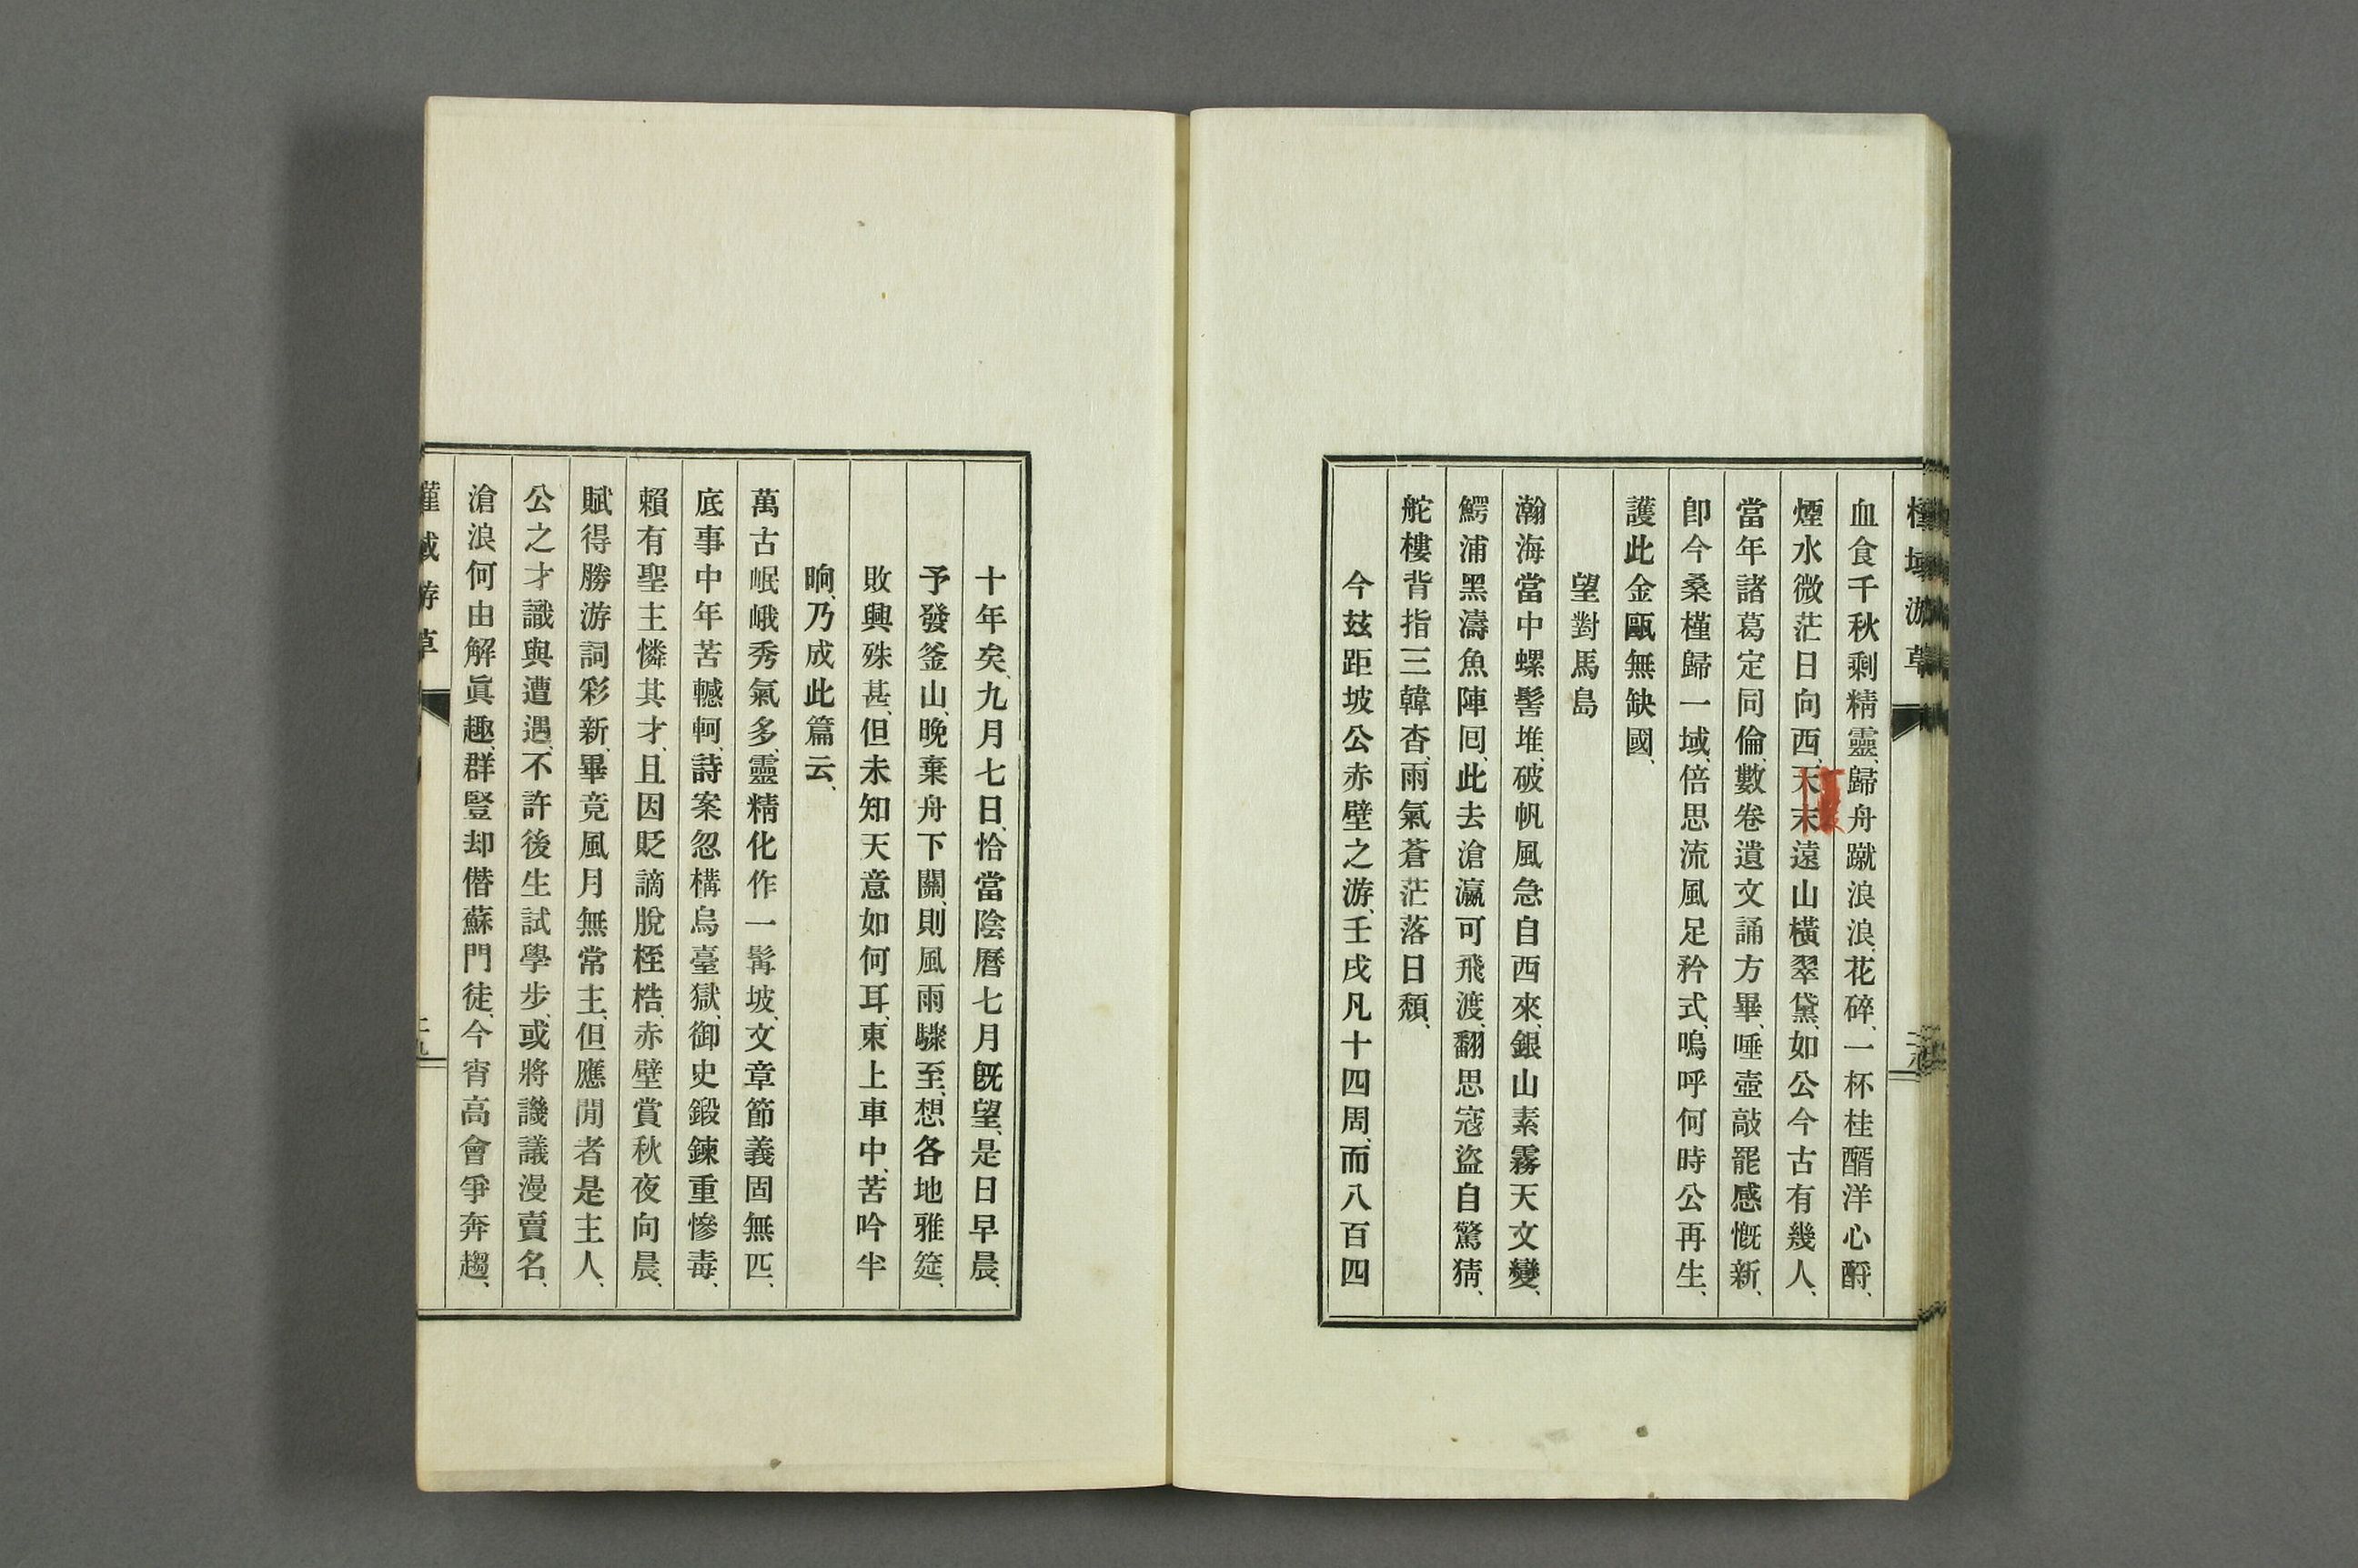 槿域游草
血食千秋剩精靈、歸舟蹴浪浪花碎、一杯桂醑洋心酹、
煙水微茫日向西、天末遠山橫翠黛、如公今古有幾人、
當年諸葛定同倫、數卷遺文誦方畢、唾壺敲罷感慨新、
卽今桑槿歸一域、倍思流風足矜式、嗚呼何時公再生、
護此金甌無缺國、
望對馬島
瀚海當中螺髻堆、破帆風急自西來、銀山素霧天文變、
鰐浦黑濤魚陣回、此去滄瀛可飛渡、翻思寇盜自驚猜、
舵樓背指三韓杳、雨氣蒼茫落日頹、
今玆距坡公赤壁之游、壬戌凡十四周、而八百四
十年矣、九月七日、恰當陰曆七月旣望、是日早晨、
予發釜山、晚棄舟下關、則風雨驟至、想各地雅筵、
敗興殊甚、但未知天意如何耳、東上車中、苦吟半
晌、乃成此篇云、
萬古岷峨秀氣多、靈精化作一髯坡、文章節義固無匹、
底事中年苦轗軻、詩案忽構烏臺獄、御史鍛鍊重慘毒、
賴有聖主憐其才、且因貶謫脫桎梏、赤壁賞秋夜向晨、
賦得勝游詞彩新、畢竟風月無常主、但應閒者是主人、
公之才識與遭遇、不許後生試學步、或將譏議漫賣名、
滄浪何由解眞趣、群豎却僭蘇門徒、今宵高會爭奔趨、
槿域游草